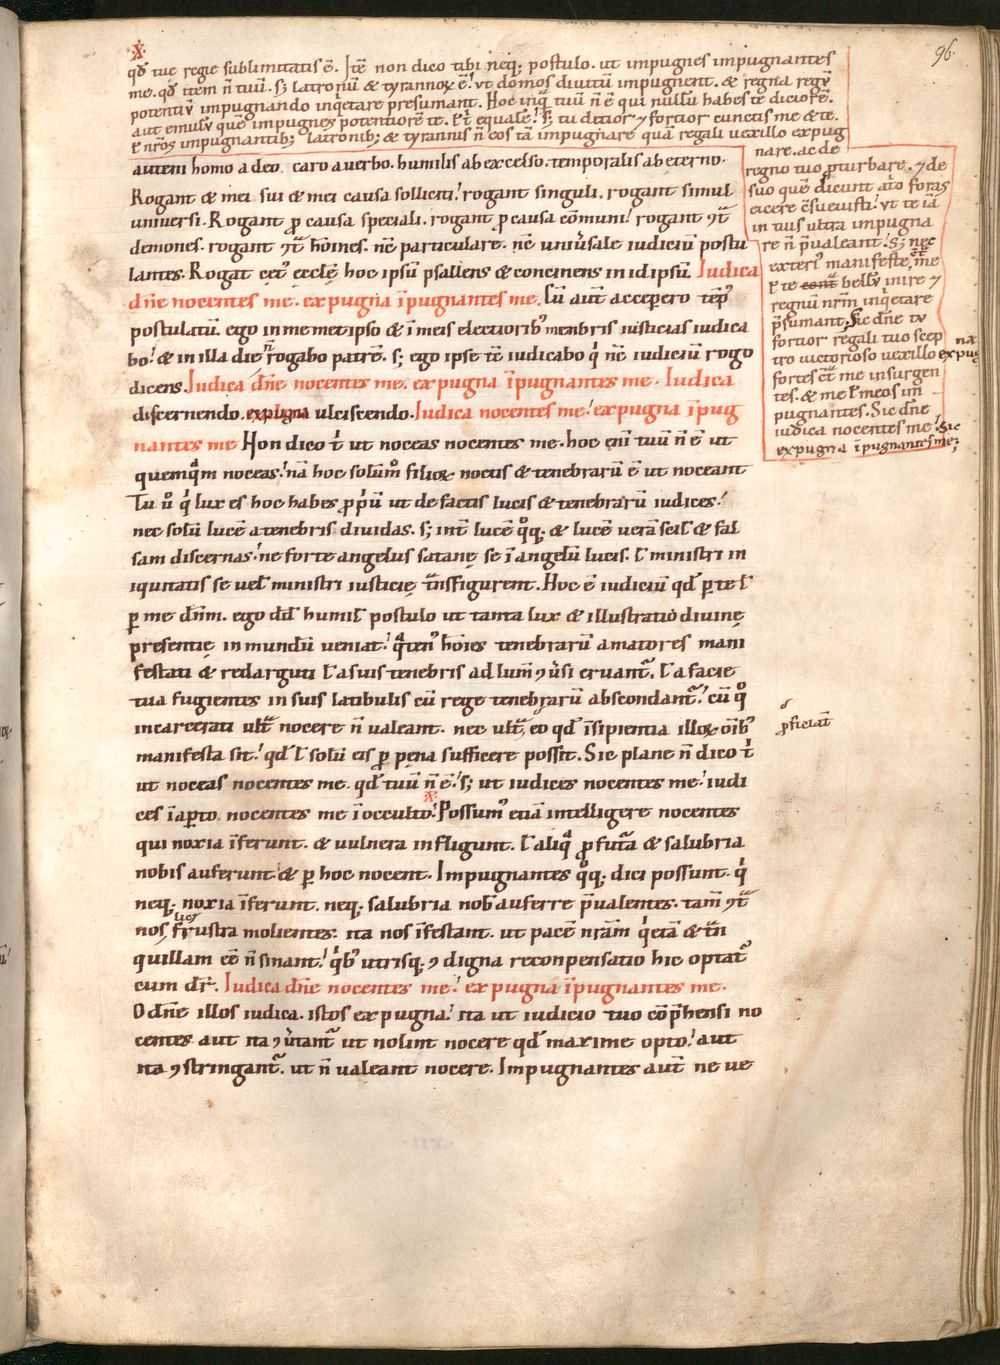 96.
qđ tue regie sublimitatis ē. Itē non dico tibi neq; postulo. ut impugnes impugnantes
me. qđ itēm n̄ tuū. sꝫ latronū & tyrannoꝝ ē. ut domos diuitū impugnent. & regna regū
potentiū impugnando inq̇etare presumant. Hoc inq̄ tuū n̄ ē qui nullū habes te diciorē.
aut emulū quē impugnes potentiorē te. ł t̄ equalē. Sꝫ tu ditior ⁊ fortior cunctis me & te.
ł nr̄os impugnantibꝫ latronibꝫ & tyrannis n̄ eos tā impugnare quā regali uexillo expug
nare. ac de
regno tuo ꝓturbare. ⁊ de
suo quē dicunt at̄o foras
eicere c̄sueuisti. ut te iā
in tus ultra impugna
re n̄ p̄ualeant. Sꝫ nec
exteri⁹ manifestē, me
ł te bellū inire ⁊
regnū nr̄m inq̇etare
p̄sumant. Sic dn̄e tu
fortior regali tuo scep
tro uictorioso uexillo expug
na
fortes cōt̄ me insurgen
tes. & me ł meos im
pugnantes. Sic dn̄e
iudica nocentes me. Sic
expugna īpugnantes me;
autem homo a deo. caro a uerbo. humilis ab excelso. temporalis ab eterno.
Rogant & mei. sui & mei causa solliciti. rogant singuli. rogant simul
uniuersi. Rogant ꝓ causa speciali. rogant ꝓ causa cōmuni. rogant ꝯt̄
demones. rogant ꝯt̄ hōines. nc̄ particulare. nc̄ uniu̇sale iudiciū postu
lantes. Rogat cet⁹ ecclę̄ hoc ipsū psallens & concinens in id ipsū. Iudica
dn̄e nocentes me. expugna īpugnantes me. Cū aut̄ accepero temp⁹
postulatū. ego in me met ipso & ī meis electiorib⁹ menbris iusticias iudica
bo. & in illa die n̄ rogabo patrē. sꝫ ego ipse tc̄ iudicabo q̇ nc̄ iudiciū rogo
dicens. Iudica dn̄e nocentes me. expugna īpugnantes me. Iudica
discernendo. expugna ulciscendo. Iudica nocentes me. expugna īpug
nantes me Non dico t̄ ut noceas nocentes me. hoc eni̅ tuū n̄ ē ut
quemq̄m noceas. nā hoc solūm⁹ filioꝝ noctis & tenebrarū ē ut noceant
Tu u̇ q̇ lux es hoc habes ꝓp̄ū ut de factis lucis & tenebrarū iudices.
nec solū lucē a tenebris diuidas. sꝫ int̄ lucē q̊q;. & lucē uerā scił & fal
sam discernas. ne forte angelus satanę se ī angelū lucis. ł ministri in
iquitatis se uelđ ministri iusticię t̄nsfigurent. Hoc ē iudiciū qđ ꝑ te ł
ꝑ me dn̄m. ego dđ humil postulo ut tanta lux & illustratio diuinę
presentię in mundū ueniat. q̄ten⁹ hōies tenebrarū amatores mani
festati & redarguti ł a suis tenebris ad lum̄ ꝯu̇si eruant̄. ł a facie
tua fugientes in suis latibulis cū rege tenebrarū abscondant̄. cū q̊
incarcerati ult̄ nocere n̄ ualeant. nec ult̄ eo qđ īsipientia illoꝝ oīb⁹
manifesta sit. qđ ł solū eis ꝓ pęna sufficere possit. Sic plane n̄ dico t̄
ꝓficiāt
ut noceas nocentes me. qđ tuū n̄ ē. sꝫ ut iudices nocentes me. iudi
ces ī aꝑto nocentes me ī occulto. Possum⁹ etiā intelligere nocentes
qui noxia īferunt. & uulnera infligunt. ł aliq̄ ꝓfutā & salubria
nobis auferunt. & ꝑ hoc nocent. Impugnantes q̊q; dici possunt. q̇
neq; noxia īferunt. neq; salubria nob̄ auferre p̄ualentes. tam̄ ꝯt̄
nos licet frustra molientes: ita nos īfestant. ut pacē nr̄am q̇etā & t̄n
quillam eē n̄ sinant. q̇b⁹ utrisq; ꝯdigna reconpensatio hic optat̄
cum dr̄. Iudica dn̄e nocentes me. expugna īpugnantes me.
O dn̄e illos iudica. istos expugna. ita ut iudicio tuo cōp̄hensi no
centes aut ita ꝯu̇tant̄ ut nolint nocere qđ maxime opto. aut
ita ꝯstringant̄. ut n̄ ualeant nocere. Impugnantes aut̄ ne ue